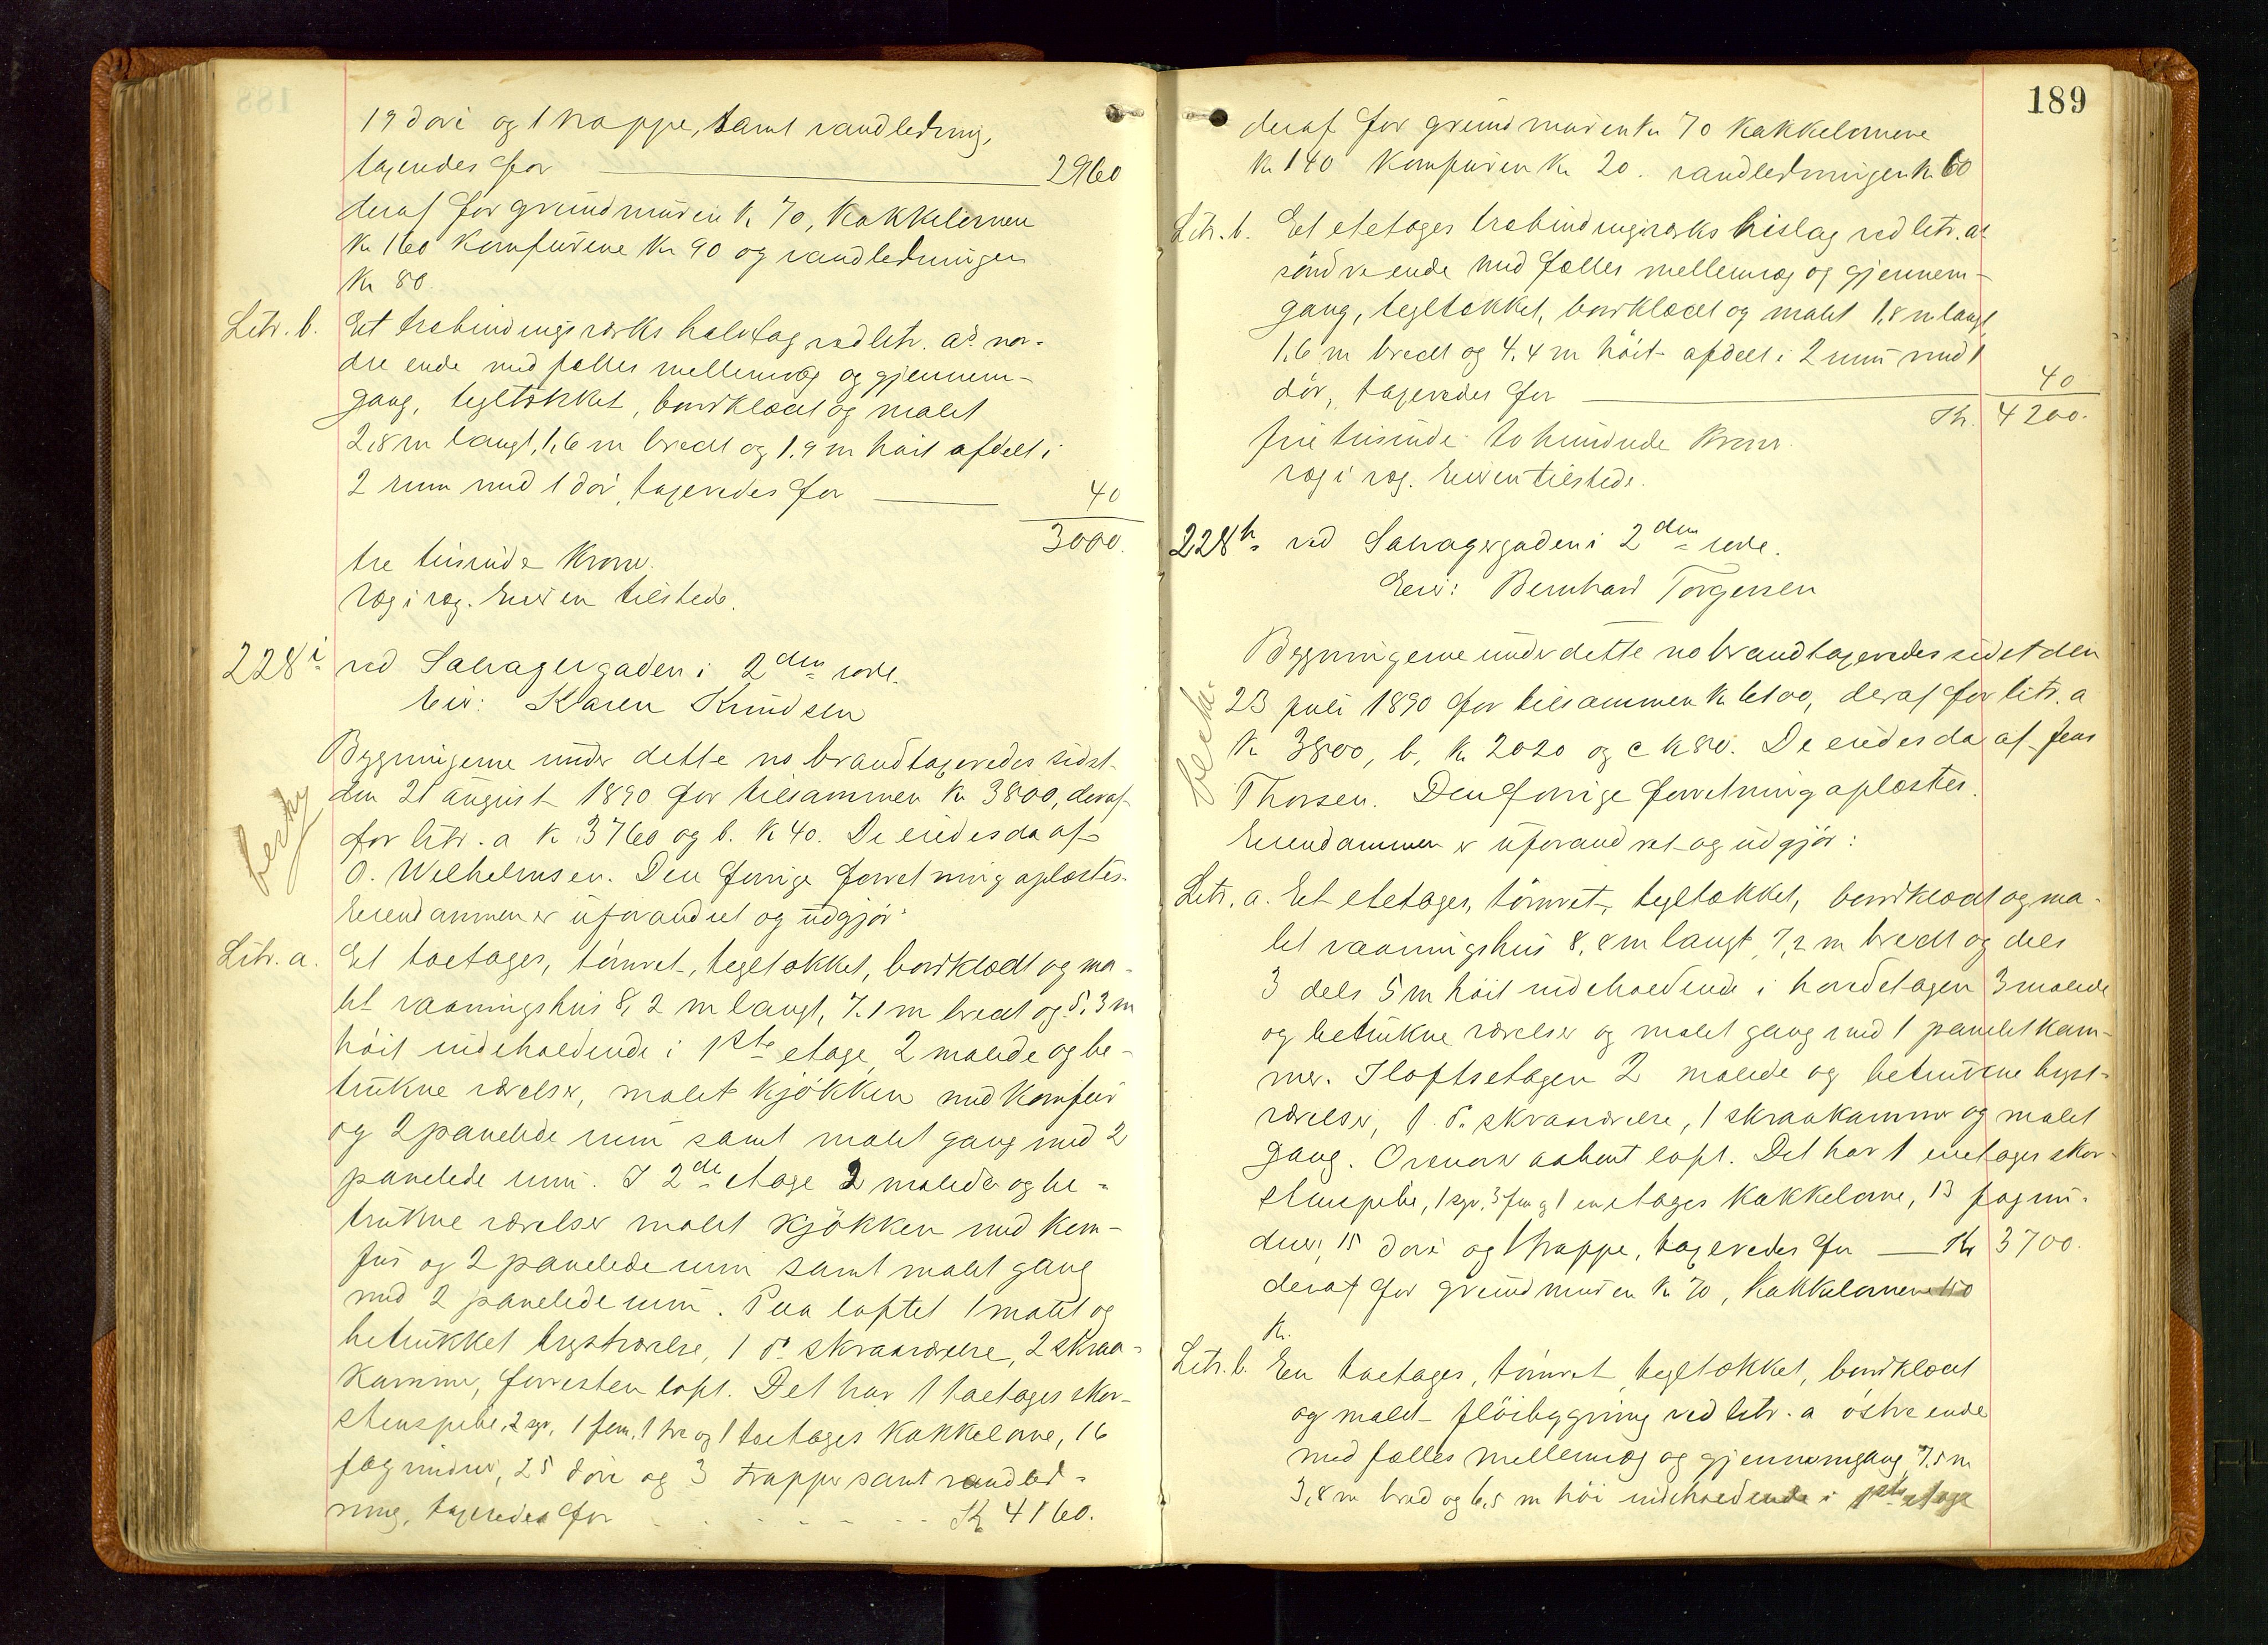 19 döre og 1 trappe, samt vandledning,
taxeredes for 2960
deraf for grundmuren k. 70, kakkelovnen
kr 160 komfurene kr 90 og vandledningen
kr 80
Litr. b. Et trebindingsverks halvtag ved litr. a's nor-
dre ende med fælles mellemvæg og gjennem-
gang, tegltækket, bordklædt og malet
2,8 m langt, 1,6 m bredt og 1.9 m höit afdelt i
2 rum med 1 dör, taxeredes for 40
3000.
tre tusinde kroner.
Væg i væg. Eieren tilstede.
228 i ved Lavagergaden i 2den rode.
Eier: Karen Knudsen
Bygningerne under dette no brandtaxeredes sidst
den 21 august 1890 for tilsammen kr 3800, deraf
for litr. a k 3760 og b. k 40. De eiedes da af
O. Wilhelmsen. Den forrige forretning oplæstes.
Eiendommen er uforandret og udgjör:
Litr. a. Et toetages, tömret, tegltækket, bordklædt og ma-
let vaaningshus 8,2 m langt, 7.1 m bredt og 5,3 m
höit indeholdende i 1ste etage 2 malede og be-
trukne værelser, malet kjökken med komfur
og 2 panelede rum samt malet gang med 2
panelede rum. I 2de etage 2 malede og be-
trukne værelser malet kjökken med kom-
fur og 2 panelede rum samt malet gang
med 2 panelede rum. Paa loftet 1 malet og
betrukket kvistværelse, 1 do skraaværelse, 2 skraa-
kammer, forresten loft. Det har 1 toetages skor-
stenspibe, 2 syv, 1 fem, 1 tre og 1 toetages kakkelovne, 16
fag vinduer, 25 döre og 3 trapper samt vandled-
ning, taxeredes for Kr 4160.
189
deraf for grundmuren kr 70 kakkelovnene
kr 140 komfuren kr 20. vandledningen kr 60
Litr. b. Et etetages trebindingsverks bislag ved litr. a's
söndre ende med fælles mellemvæg og gjennem-
gang, tegltækket, bordklædt og malet 1,8 m langt
1,6 m bredt og 4,4 m höit afdelt i 2 rum med 1
dör, taxeredes for 40
Kr. 4200.
fire tusinde to hundrede kroner.
væg i væg. Eieren tilstede.
228 h ved Lavagergaden i 2den rode.
Eier: Bernhard Torgersen
Bygningerne under dette no brandtaxeredes sidst den
23 juli 1890 for tilsammen kr 6100, deraf for litr. a
kr 3800, b, kr 2020 og c k 80. De eiedes da af Jens
Thorsen. Den forrige forretning oplæstes.
Eiendommen er uforandret og udgjör:
Litr. a. Et etetages, tömret, tegltækket, bordklædt og ma-
let vaaningshus 8,8 m langt 7,2 m bredt og dels
3 dels 5 m höit indeholdende i hovedetagen 3 malede
og betrukne værelser og malet gang med 1 panelet kam-
mer. I loftsetagen 2 malede og betrukne kvist-
værelser, 1 do skraaværelse, 1 skraakammer og malet
gang. Ovenover aabent loft. Det har 1 enetages skor-
stenspibe, 1 syv, 3 fem og 1 enetages kakkelovne, 13 fag vin-
duer, 15 döre og 1 trappe, taxeredes for Kr 3700.
deraf for grundmuren kr 70, kakkelovnene 110
kr.
Litr. b. En toetages, tömret, tegltækket, bordklædt
og malet flöibygning ved litr. a östre ende
med fælles mellemvæg og gjennemgang, 7,5 m
3,8 m bred og 6,5 m höi indeholdende i 1ste etage